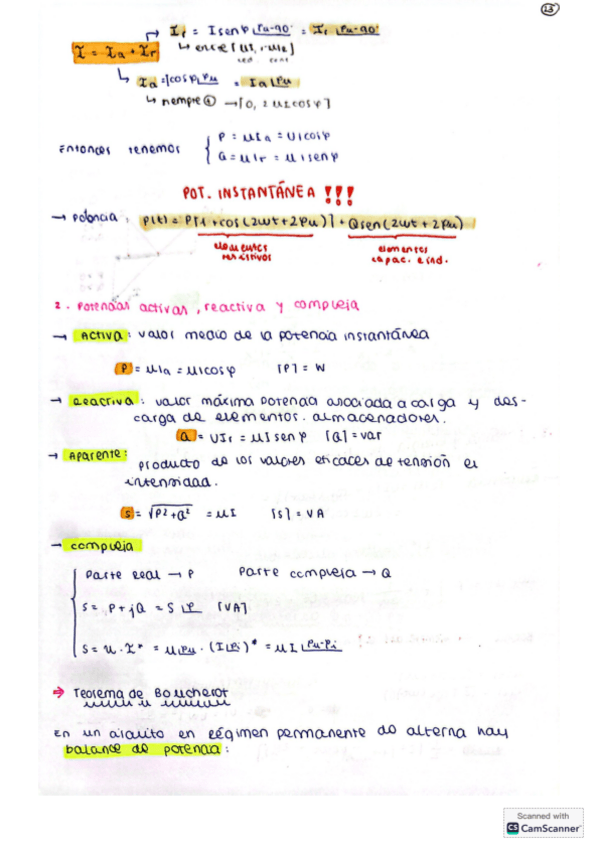 23
Ir = I sen φ |φu-90º = Ir |φu-90º
I = Ia + Ir
Ia = I cos φ |φu = Ia |φu
→ [0, 2UI cos φ]
Entonces tenemos { P = UIa = UI cos φ
Q = UIr = UI sen φ
POT. INSTANTÁNEA !!!
→ potencia: P(t) = P[1 + cos(2wt + 2φu)] + Q sen(2wt + 2φu)
elementos resistivos
elementos capac. e ind.
2. Potencias activas, reactiva y compleja
→ Activa: valor medio de la potencia instantánea
P = UIa = UI cos φ [P] = W
→ Reactiva: valor máxima potencia asociada a carga y des-
carga de elementos almacenadores.
Q = UIr = UI sen φ [Q] = var
→ Aparente:
producto de los valores eficaces de tensión e
intensidad.
S = √P² + Q² = UI [S] = VA
→ compleja
Parte real → P Parte compleja → Q
S = P + jQ = S |φ [VA]
S = U · I* = U|φu · (I|φi)* = UI |φu-φi
⇒ Teorema de Boucherot
En un circuito en régimen permanente de alterna hay
balance de potencia:
Scanned with
CS CamScanner